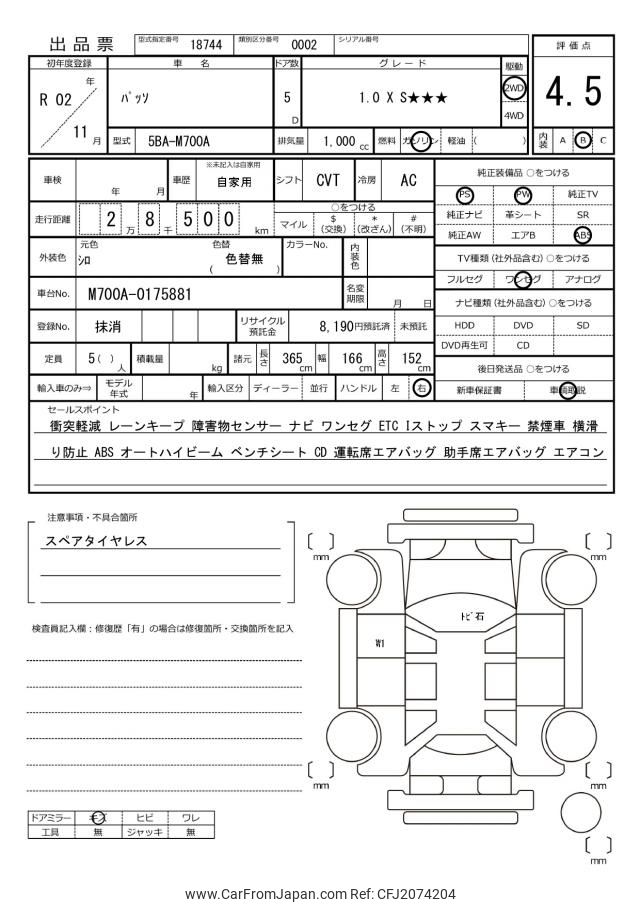 出品票 型式指定番号 18744 類別区分番号 0002 シリアル番号 評価点
初年度登録 車名 ドア数 グレード 駆動
R 02 年 ﾊﾟｯｿ 5 D 1.0 X S★★★ 2WD 4.5
11 月 4WD
型式 5BA-M700A 排気量 1,000 cc 燃料 ガソリン 軽油 ( ) 内装 A B C
車検 年 月 車歴 ※未記入は自家用 自家用 シフト CVT 冷房 AC 純正装備品 ○をつける
PS PW 純正TV
走行距離 2 8 万 千 5 0 0 km ○をつける
マイル $ (交換) * (改ざん) # (不明)
純正ナビ 革シート SR
純正AW エアB ABS
外装色 元色 ｼﾛ 色替 ( 色替無 ) カラーNo. 内装色
TV種類 (社外品含む) ○をつける
フルセグ ワンセグ アナログ
車台No. M700A-0175881 名変期限 月 日
ナビ種類 (社外品含む) ○をつける
登録No. 抹消 リサイクル預託金 8,190円預託済 未預託
HDD DVD SD
DVD再生可 CD
定員 5( ) 人 積載量 kg 諸元 長さ 365 cm 幅 166 cm 高さ 152 cm
後日発送品 ○をつける
輸入車のみ⇒ モデル年式 年 輸入区分 ディーラー 並行 ハンドル 左 右
新車保証書 車輌取説
セールスポイント
衝突軽減 レーンキープ 障害物センサー ナビ ワンセグ ETC Iストップ スマキー 禁煙車 横滑
り防止 ABS オートハイビーム ベンチシート CD 運転席エアバッグ 助手席エアバッグ エアコン
注意事項・不具合箇所
スペアタイヤレス
検査員記入欄：修復歴「有」の場合は修復箇所・交換箇所を記入
mm mm
ﾄﾋﾞ石
W1
mm mm
mm
ドアミラー キズ ヒビ ワレ
工具 無 ジャッキ 無
www.CarFromJapan.com Ref: CFJ2074204